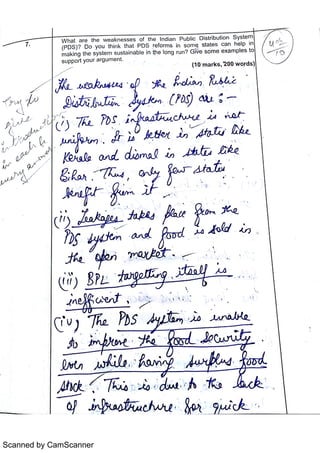 7.
What are the weaknesses of the Indian Public Distribution System
(PDS)? Do you think that PDS reforms in some states can help in
making the system sustainable in the long run? Give some examples to
support your argument.
(10 marks, 200 words)
10
Try to
give
introduction
in each &
every answer
The weaknesses of the Indian Public
Distribution System (PDS) are :-
(i) The PDS infrastructure is not
uniform. It is better in states like
Kerala and dismal in states like
Bihar. Thus, only few states
benefit from it
(ii) Leakages takes place from the
PDS system and food is sold in
the open market.
(iii) BPL targetting itself is
inefficient.
(iv) The PDS system is unable
to improve the food security
even while having surplus food
stock. This is due to the lack
of infrastructure for quick
Scanned by CamScanner